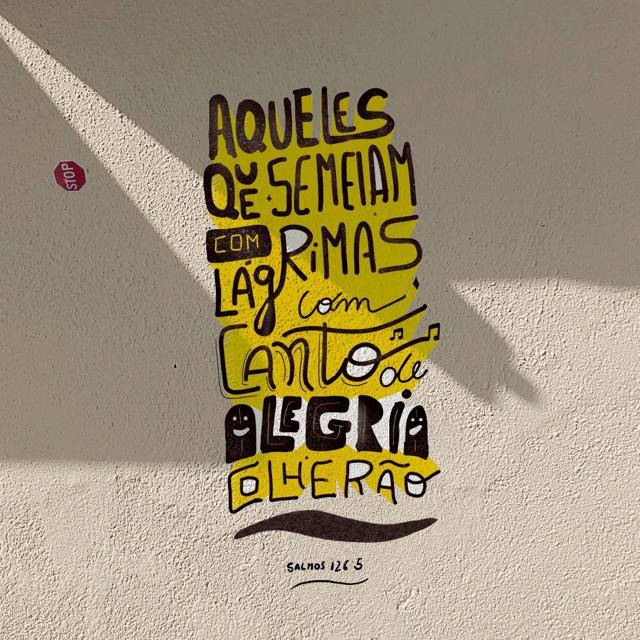 STOP
AQUELES
QUE SEMEIAM
COM
LÁgRiMAS
com
CANTO de
ALEGRIA
COLHERÃO
SALMOS 126 5